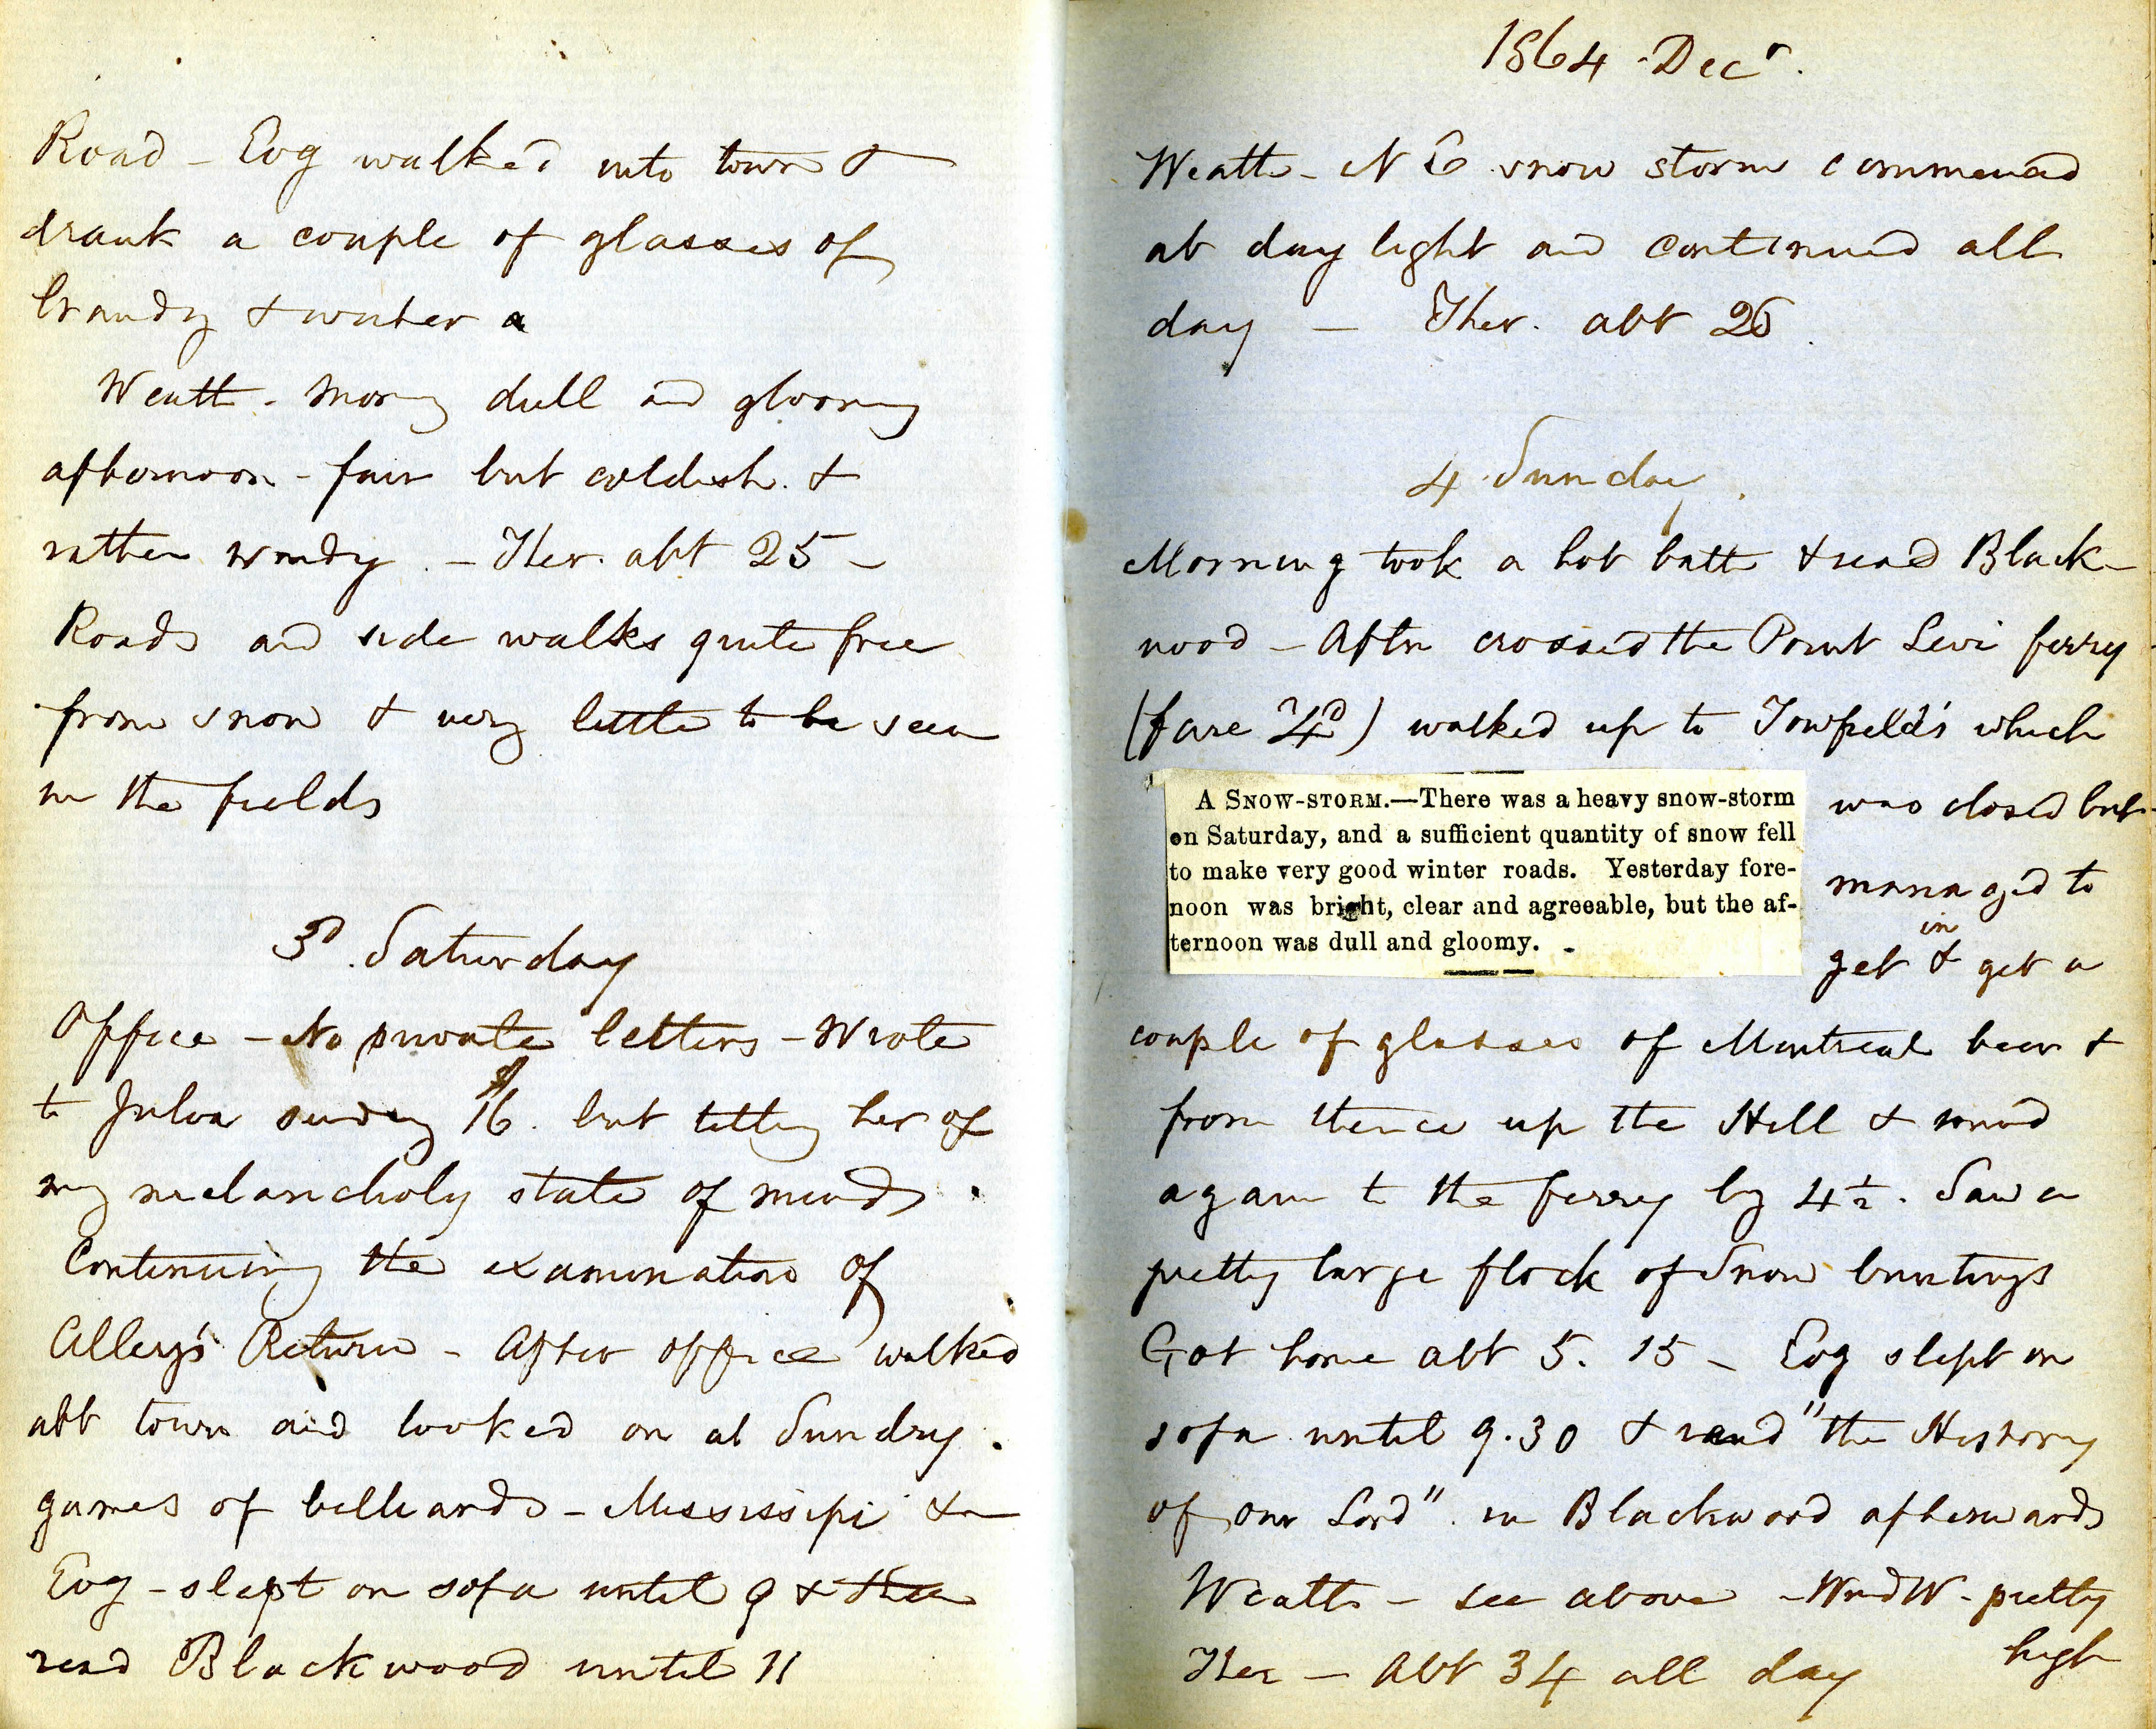 Road - Evg walked into town &
drank a couple of glasses of
brandy & water a
Weath - Morng dull and gloomy
afternoon - fair but coldish. &
rather windy. - Ther. abt 25 -
Roads and side walks quite free
from snow & very little to be seen
in the fields
3d. Saturday
Office - No private letters - Wrote
to Julia sendg £16. but tellg her of
my melancholy state of mind.
Continuing the examination of
Alleyn's Return - After office walked
abt town and looked on at Sundry.
games of billiards - Mississipi &c
Evg - slept on sofa until 9 & then
read Blackwood until 11
1864 - Decr.
Weath - N E snow storm commenced
at day light and continued all
day - Ther. abt 26.
4 Sunday.
Morning took a hot bath & read Black-
wood - Aftn crossed the Point Levi ferry
(fare 4d) walked up to which
was closed but
managed to
get in & get a
A SNOW-STORM.—There was a heavy snow-storm
on Saturday, and a sufficient quantity of snow fell
to make very good winter roads. Yesterday fore-
noon was bright, clear and agreeable, but the af-
ternoon was dull and gloomy.
couple of glasses of Montreal beer &
from thence up the Hill & round
again to the ferry by 4½. Saw a
pretty large flock of Snow buntings
Got home abt 5.15 - Evg slept on
sofa until 9.30 & read "the History
of our Lord". in Blackwood afterwards
Weath - see above - Wnd W - pretty
high
Ther - Abt 34 all day